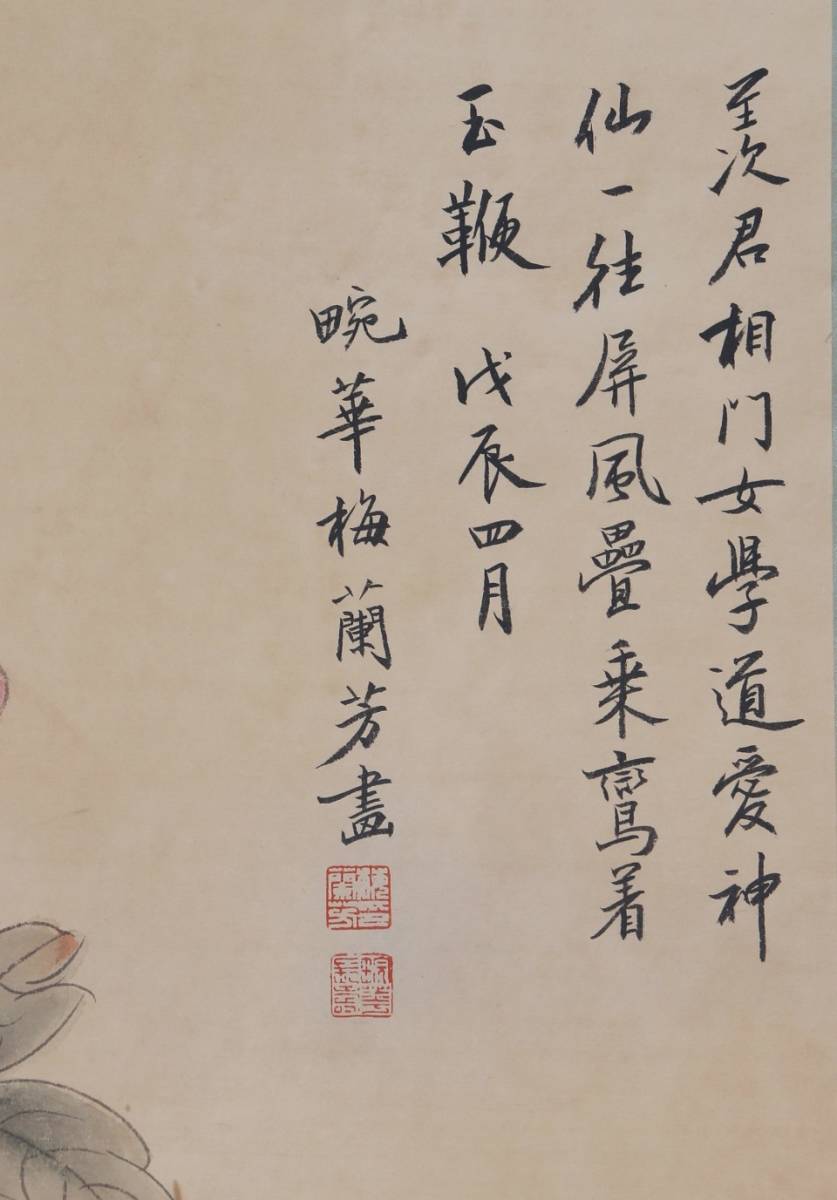 羨君相門女學道愛神
仙一往屏風疊乘鸞着
玉鞭 戊辰四月
畹華梅蘭芳畫